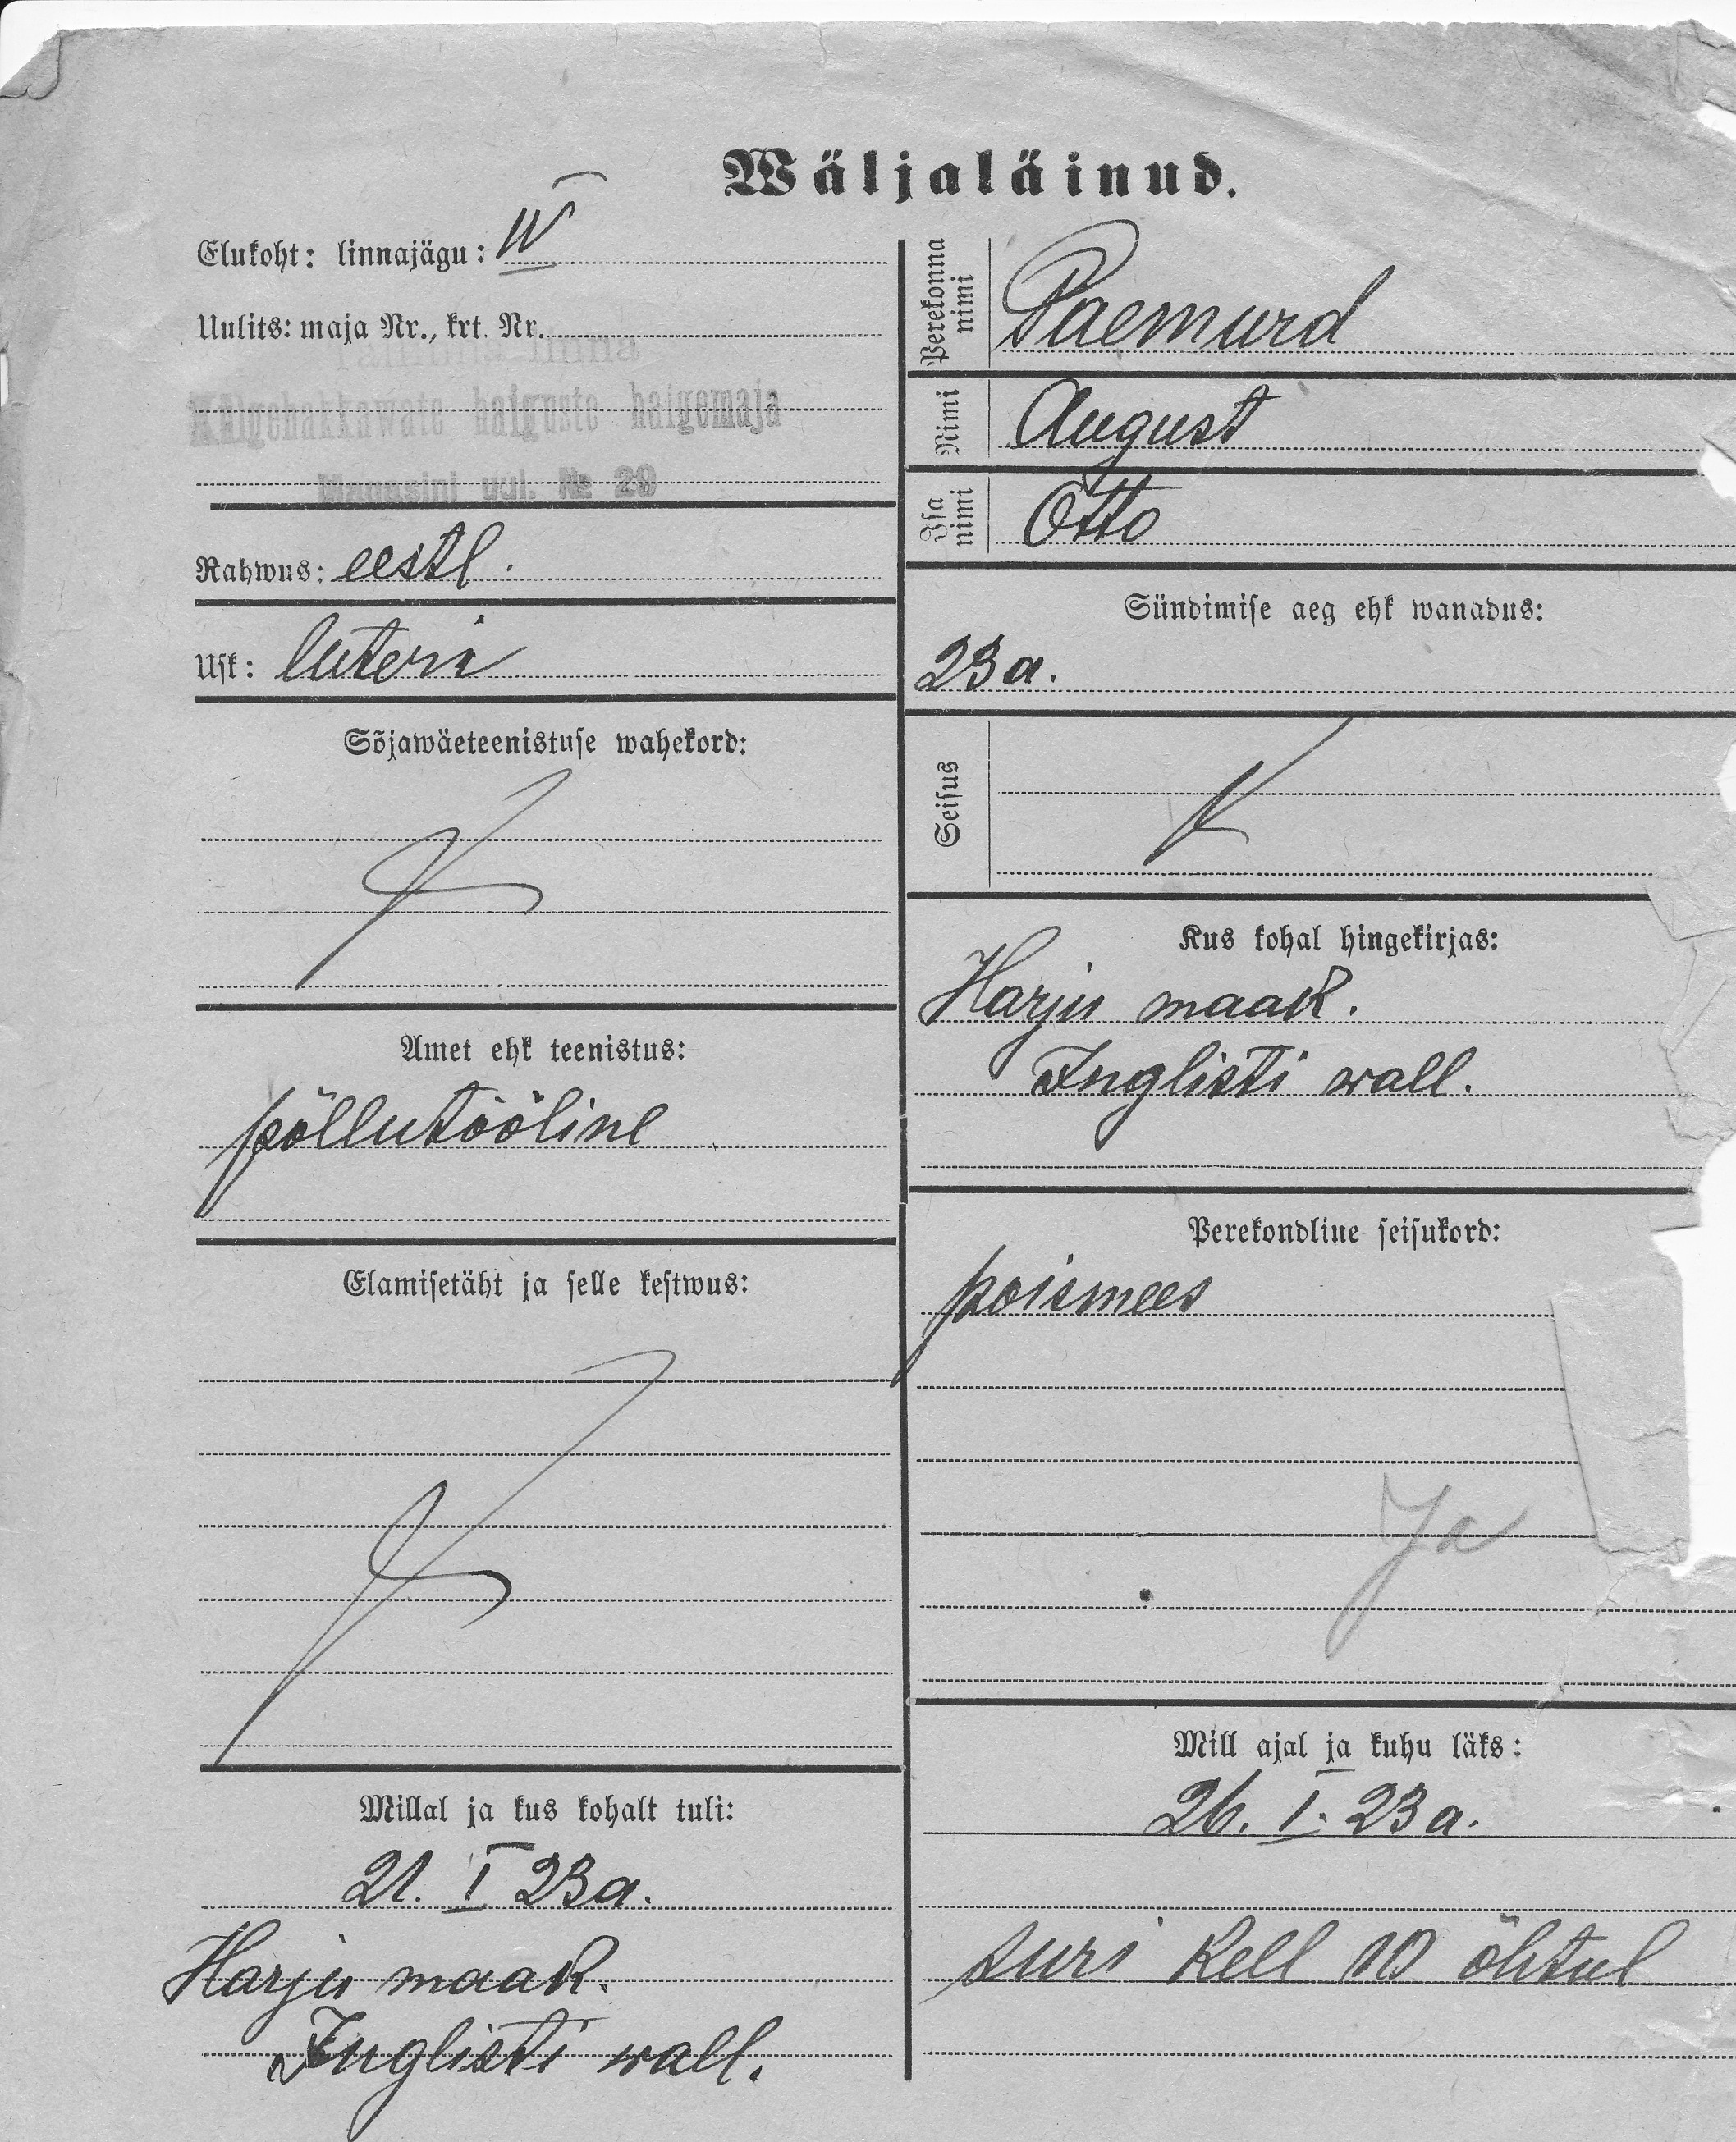 Wäljaläinud.
Elukoht: linnajägu: IV
Uulits: maja Nr., krt. Nr.
Tallinna linna
Külgehakkawate haiguste haigemaja
Magasini uul. № 29
Rahwus: eestl.
Usk: luteri
Sõjawäeteenistuse wahekord:
Amet ehk teenistus:
põllutööline
Elamisetäht ja selle kestwus:
Millal ja kus kohalt tuli:
21. I 23 a.
Harju maak.
Inglisti wall.
Perekonna nimi
Paemurd
Nimi
August
Isa nimi
Otto
Sündimise aeg ehk wanadus:
23 a.
Seisus
Kus kohal hingekirjas:
Harju maak.
Inglisti wall.
Perekondline seisukord:
poismees
Ja
Mill ajal ja kuhu läks:
26. I. 23 a.
suri kell 10 õhtul